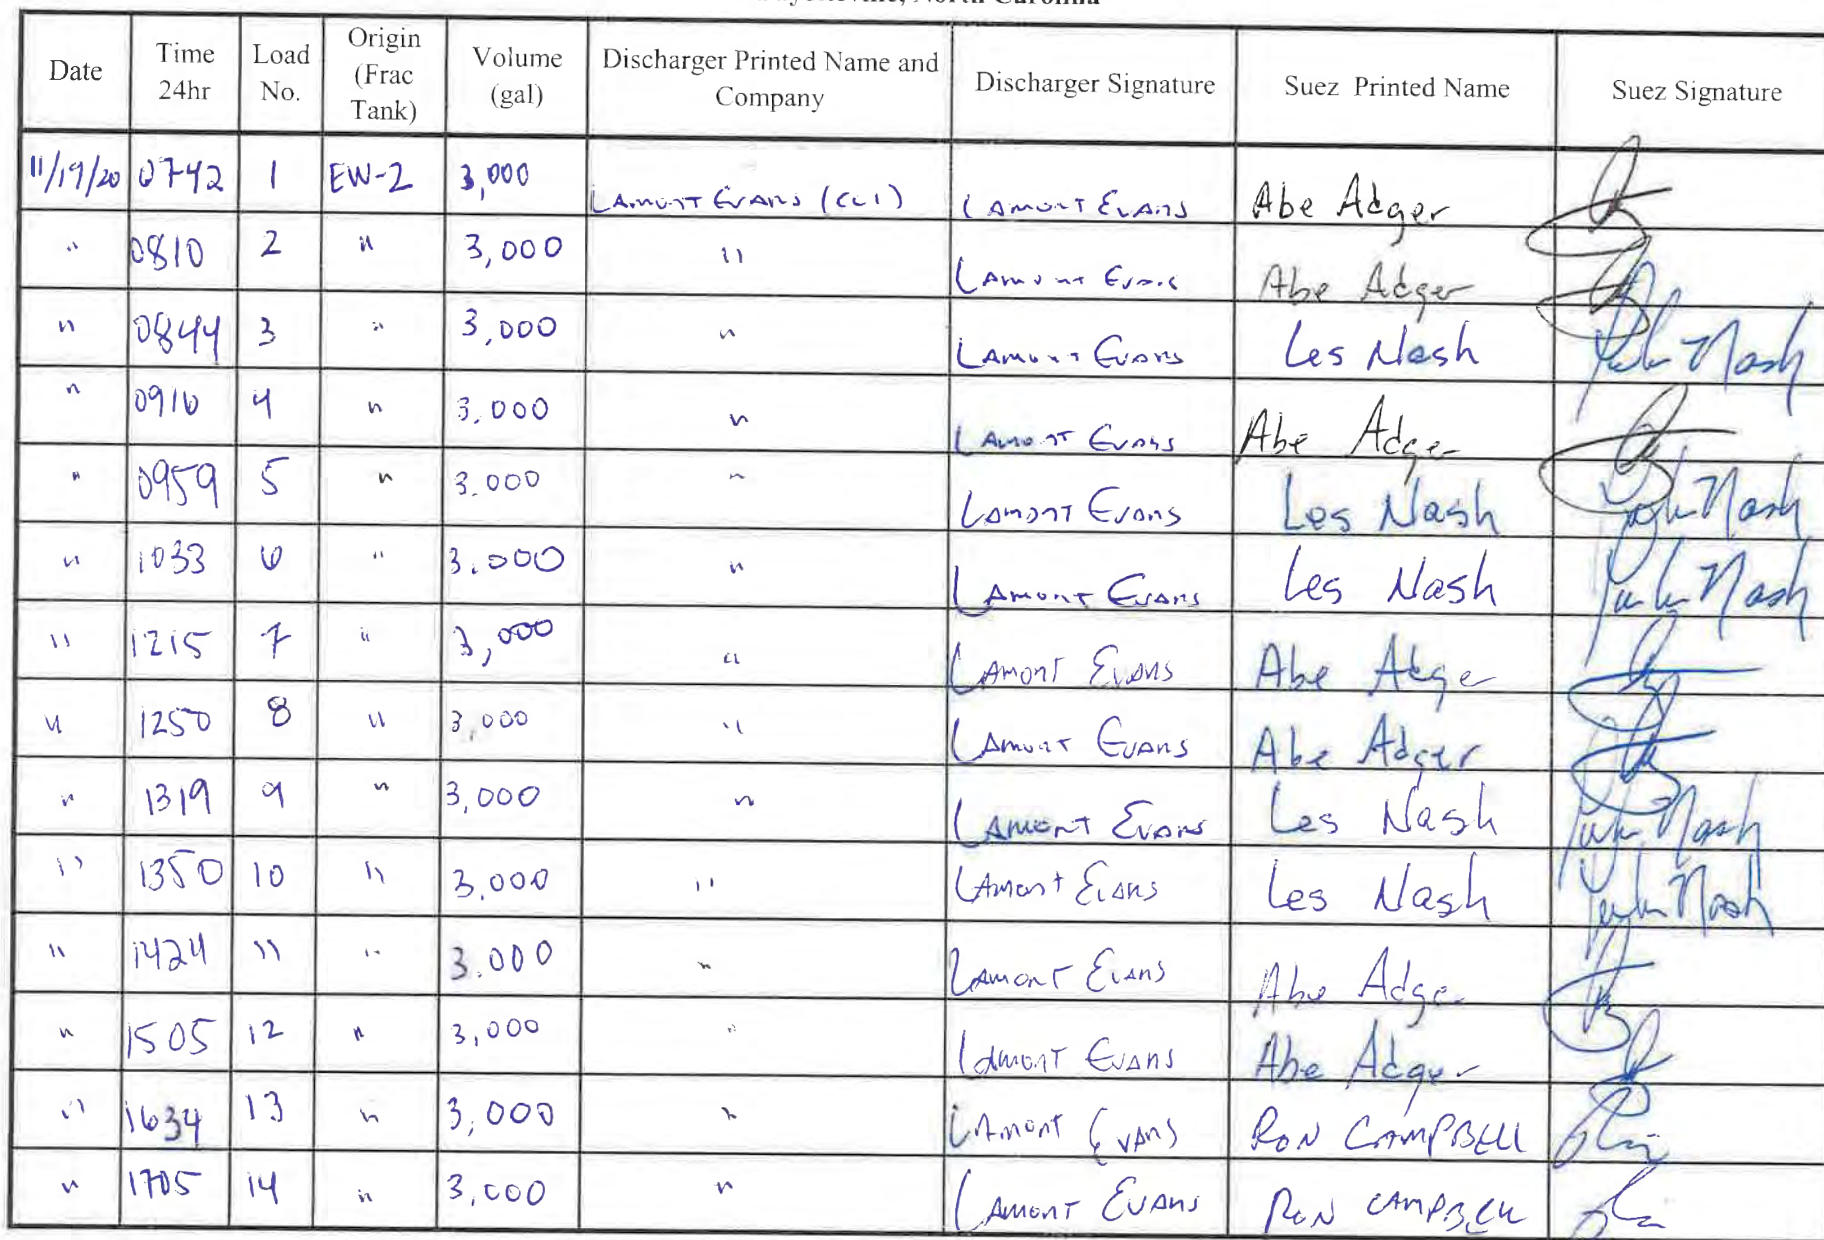 North Carolina
Date Time 24hr Load No. Origin (Frac Tank) Volume (gal) Discharger Printed Name and Company Discharger Signature Suez Printed Name Suez Signature
11/19/20 0742 1 EW-2 3,000 LAMONT EVANS (CCI) LAMONT EVANS Abe Adger
" 0810 2 " 3,000 " LAMONT EVANS Abe Adger
" 0844 3 " 3,000 " LAMONT EVANS Les Nash Nash
" 0910 4 " 3.000 " LAMONT EVANS Abe Adger
" 0959 5 " 3.000 " LAMONT EVANS Les Nash Nash
" 1033 6 " 3.000 " LAMONT EVANS Les Nash Nash
" 1215 7 " 3,000 " LAMONT EVANS Abe Adger
" 1250 8 " 3,000 " LAMONT EVANS Abe Adger
" 1319 9 " 3,000 " LAMONT EVANS Les Nash Nash
" 1350 10 " 3.000 " LAMONT EVANS Les Nash Nash
" 1424 11 " 3.000 " LAMONT EVANS Abe Adger
" 1505 12 " 3,000 " LAMONT EVANS Abe Adger
" 1634 13 " 3,000 " LAMONT EVANS RON CAMPBELL
" 1705 14 " 3,000 " LAMONT EVANS RON CAMPBELL